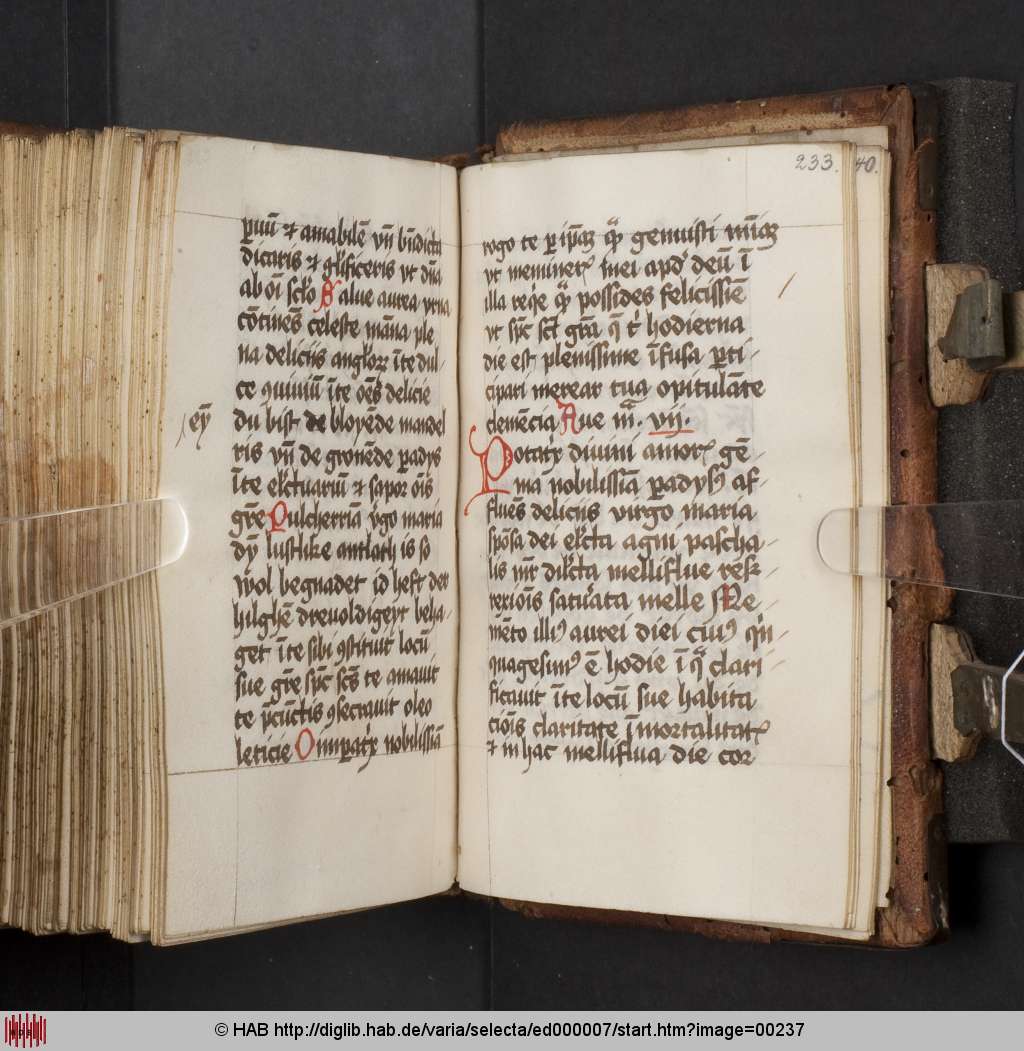 ꝑuū ⁊ amabilē vn̄ bn̄dicta
dicaris ⁊ gl̄ificeris vt dn̄a
ab oī sclo Salue aurea vrna
cōtinēs celeste māna ple
na deliciis angl̓oꝝ īte dul
ce ꝯuiuiū īte oēs delicie
eȳ
du bist de bloyēde mandel
ris vn̄ de gronēde ꝑadys
īte elc̄tuariū ⁊ sapor oīs
gr̄e Pulcherria v̓go maria
dȳ lustlike antlath is so
wol begnadet id heft der
hilghē dreuoldigeyt beha
get īte sibi ꝯstituit locū
sue gr̄e sp̄c sc̄s te amauit
te p̄cūctis ꝯsecrauit oleo
leticie O imꝑatx̓ nobilissīa
233.
40.
rogo te ꝑ ip̄m qm̄ genuisti
vt memineris mei apd̓ deū ī
illa reqͥe qm̄ possides felicissīe
vt sp̄c sc̄i gr̄a q̄ t̓ hodierna
die est plenissime īfusa ꝑti
cipari merear tua opitulāte
clemēcia Aue m̄. vij.
Potatx̓ diuini amoris gē
ma nobilissīa ꝑadysꝰ af
fluēs deliciis virgo maria
spōsa dei elc̄ta agni pascha
lis mr̄ dilc̄ta melliflue resur
rexiōis satur̓ata melle Me
mēto illiꝰ aurei diei cuiꝰ qͥn
quagesimꝰ ē hodie ī q̄ clari
ficauit īte locū sue habita
ciōis claritate īmortalitatis
⁊ in hac melliflua die cor
© HAB http://diglib.hab.de/varia/selecta/ed000007/start.htm?image=00237